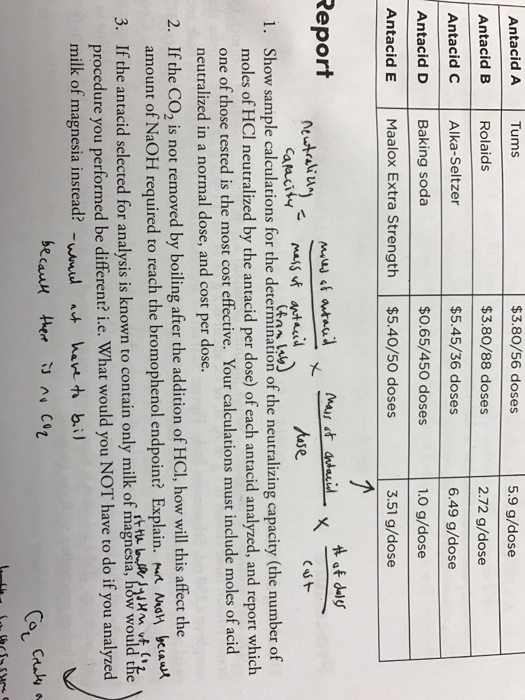 Antacid A Tums $3.80/56 doses 5.9 g/dose
Antacid B Rolaids $3.80/88 doses 2.72 g/dose
Antacid C Alka-Seltzer $5.45/36 doses 6.49 g/dose
Antacid D Baking soda $0.65/450 doses 1.0 g/dose
Antacid E Maalox Extra Strength $5.40/50 doses 3.51 g/dose
Report
neutralizing capacity = moles of antacid x mass of antacid x # of doses
mass of antacid (from lab) dose cost
1. Show sample calculations for the determination of the neutralizing capacity (the number of
moles of HCl neutralized by the antacid per dose) of each antacid analyzed, and report which
one of those tested is the most cost effective. Your calculations must include moles of acid
neutralized in a normal dose, and cost per dose.
2. If the CO₂ is not removed by boiling after the addition of HCl, how will this affect the
amount of NaOH required to reach the bromophenol endpoint? Explain. more NaOH because
of the buffer system of CO2
3. If the antacid selected for analysis is known to contain only milk of magnesia, how would the
procedure you performed be different? i.e. What would you NOT have to do if you analyzed
milk of magnesia instead? - would not have to boil
because there is no CO2
CO2 creates a